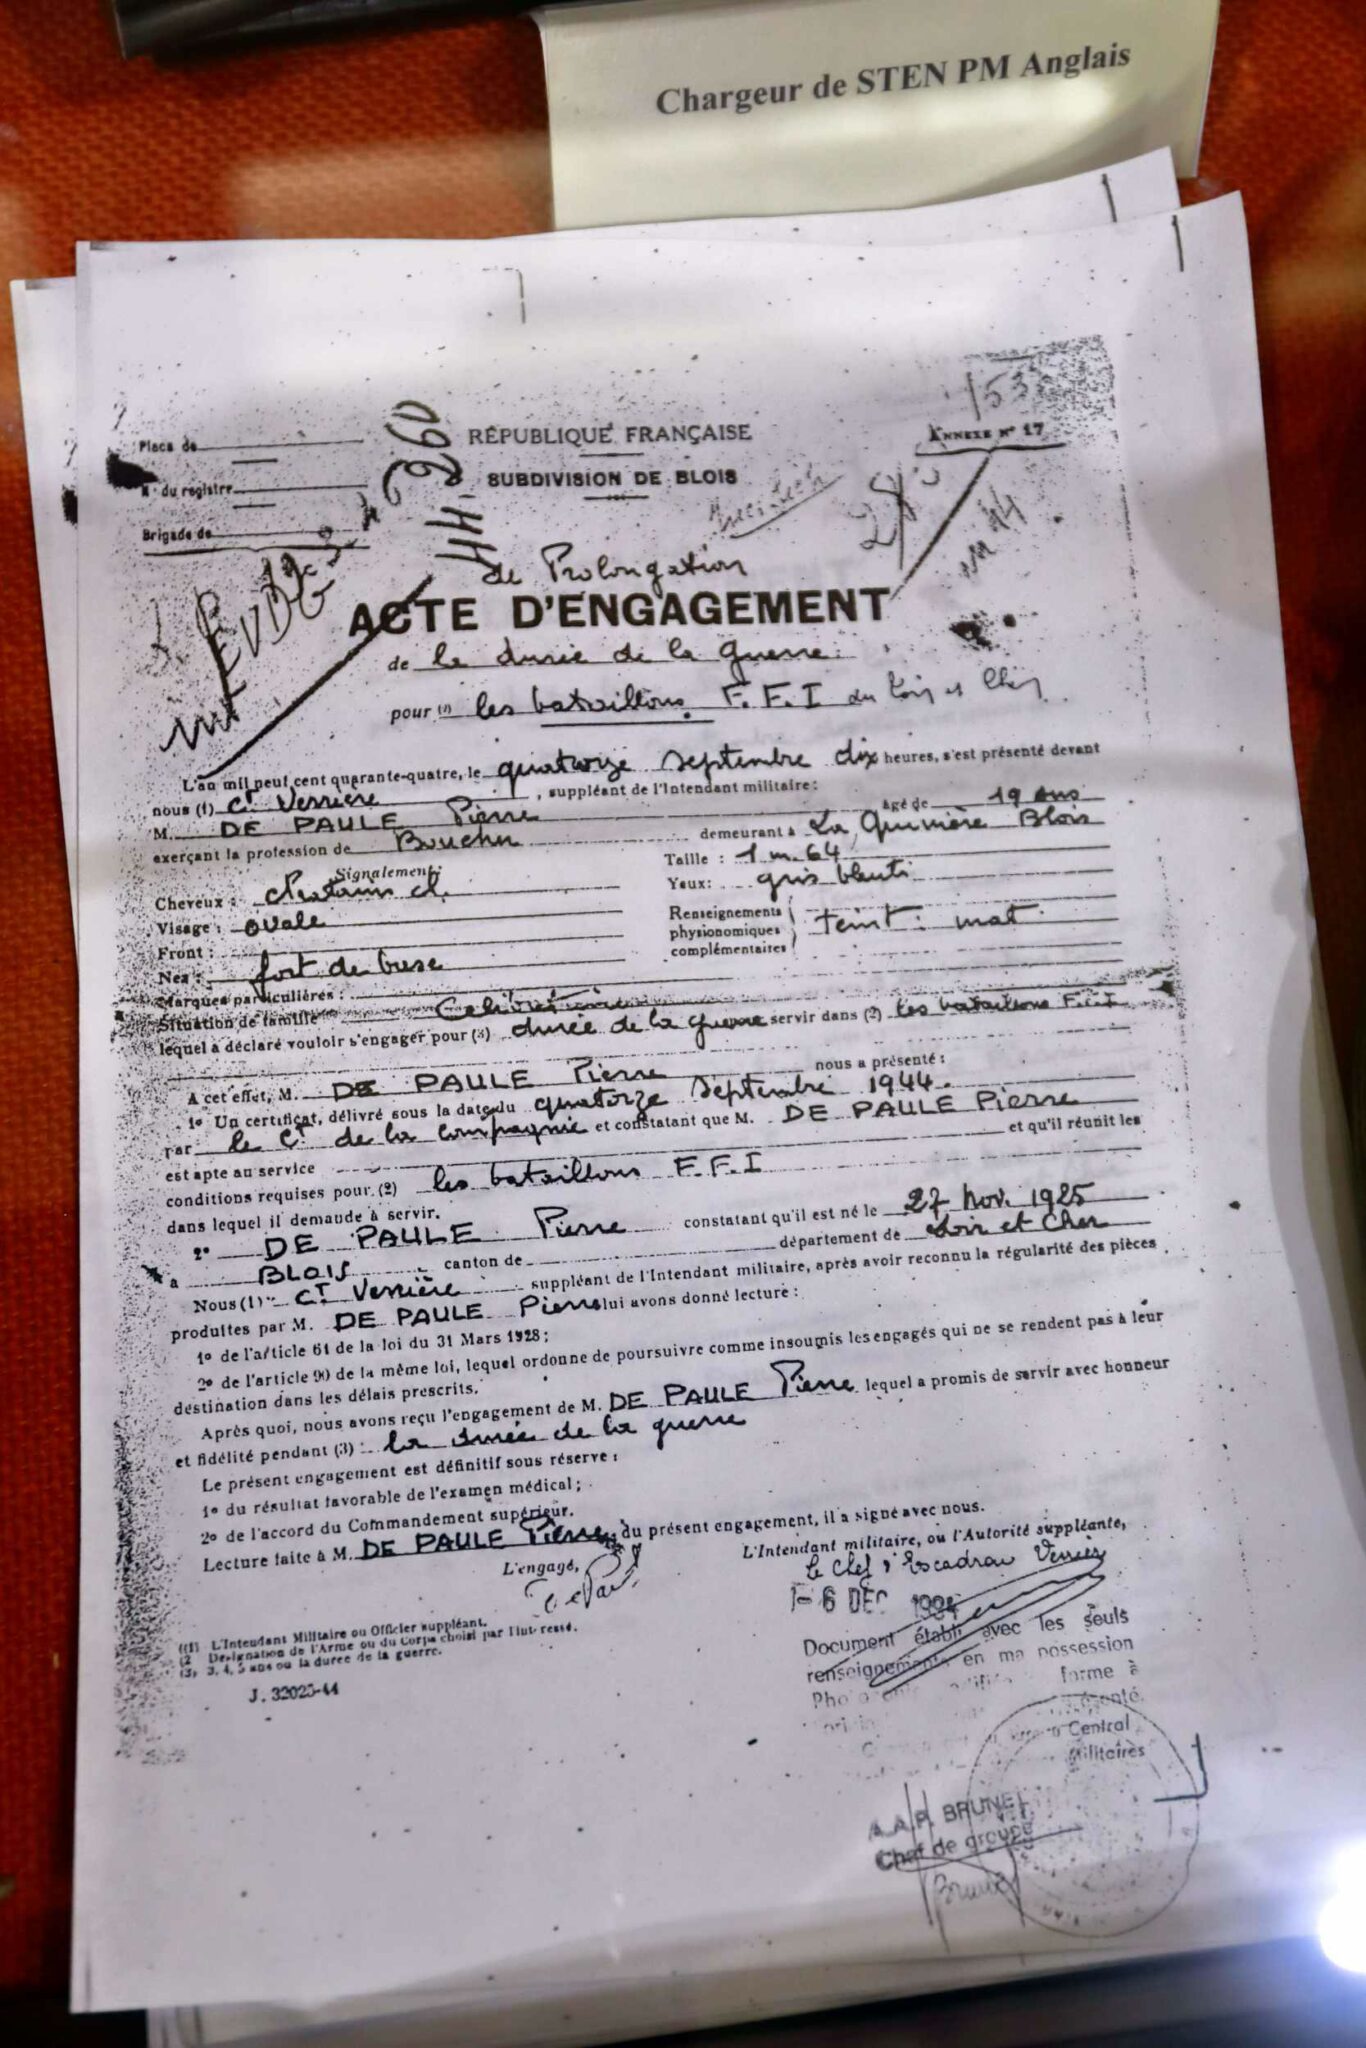 Chargeur de STEN PM Anglais
153
Place de
RÉPUBLIQUE FRANÇAISE
ANNEXE Nº 17
N° du registre
SUBDIVISION DE BLOIS
Brigade de
44.260
de Prolongation
ACTE D'ENGAGEMENT
de la durée de la guerre
pour (2) les bataillons F.F.I du Loir et Cher
L'an mil neuf cent quarante-quatre, le quatorze septembre dix heures, s'est présenté devant
nous (1) Ct Verrière, suppléant de l'Intendant militaire:
M. DE PAULE Pierre âgé de 19 ans
exerçant la profession de Boucher demeurant à La Quinière Blois
Signalement: Taille : 1 m. 64
Cheveux : chatains cl. Yeux:
Visage : ovale Renseignements
Front : physionomiques teint : mat
Nez : fort de base complémentaires
Marques particulières :
Situation de famille Celibataire
lequel a déclaré vouloir s'engager pour (3) durée de la guerre servir dans (2) les bataillons F.F.I
A cet effet, M. DE PAULE Pierre nous a présenté :
1º Un certificat, délivré sous la date du quatorze septembre 1944.
par le Ct de la compagnie et constatant que M. DE PAULE Pierre
est apte au service et qu'il réunit les
conditions requises pour (2) les bataillons F.F.I
dans lequel il demande à servir.
2º DE PAULE Pierre constatant qu'il est né le 27 Nov. 1925
à BLOIS canton de département de Loir et Cher
Nous (1) Ct Verrière suppléant de l'Intendant militaire, après avoir reconnu la régularité des pièces
produites par M. DE PAULE Pierre lui avons donné lecture :
1º de l'article 61 de la loi du 31 Mars 1928;
2º de l'article 90 de la même loi, lequel ordonne de poursuivre comme insoumis les engagés qui ne se rendent pas à leur
destination dans les délais prescrits.
Après quoi, nous avons reçu l'engagement de M. DE PAULE Pierre lequel a promis de servir avec honneur
et fidélité pendant (3) : la durée de la guerre
Le présent engagement est définitif sous réserve :
1º du résultat favorable de l'examen médical;
2º de l'accord du Commandement supérieur.
Lecture faite à M. DE PAULE Pierre du présent engagement, il a signé avec nous.
L'engagé, L'Intendant militaire, ou l'Autorité suppléante,
le Chef d'Escadron Verrière
6 DEC
(1) L'Intendant Militaire ou Officier suppléant.
(2 Désignation de l'Arme ou du Corps choisi par l'intéressé.
(3) 3, 4, 5 ans ou la durée de la guerre.
J. 32025-44
Document établi avec les seuls
renseignements en ma possession
forme à
Central
Militaires
A.A.P. BRUNET
Chef de groupe